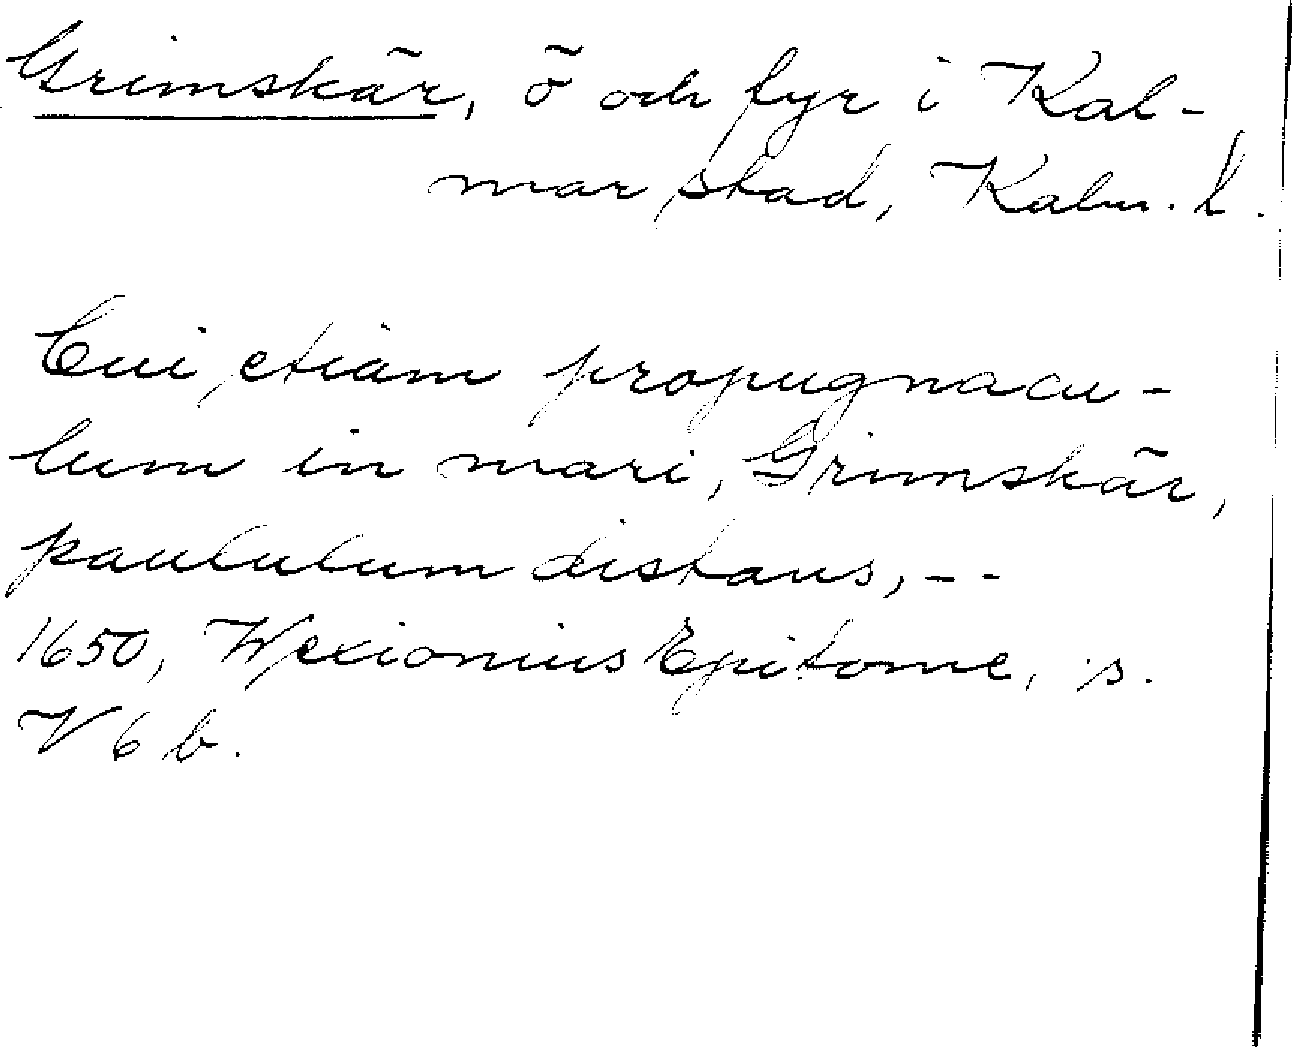 Grimskär, ö och fyr i Kal-
mar stad, Kalm. l.
Cui etiam propugnacu-
lum in mari, Grimskär,
paululum distans, --
1650, Wexionius Epitome, s.
V 6 b.